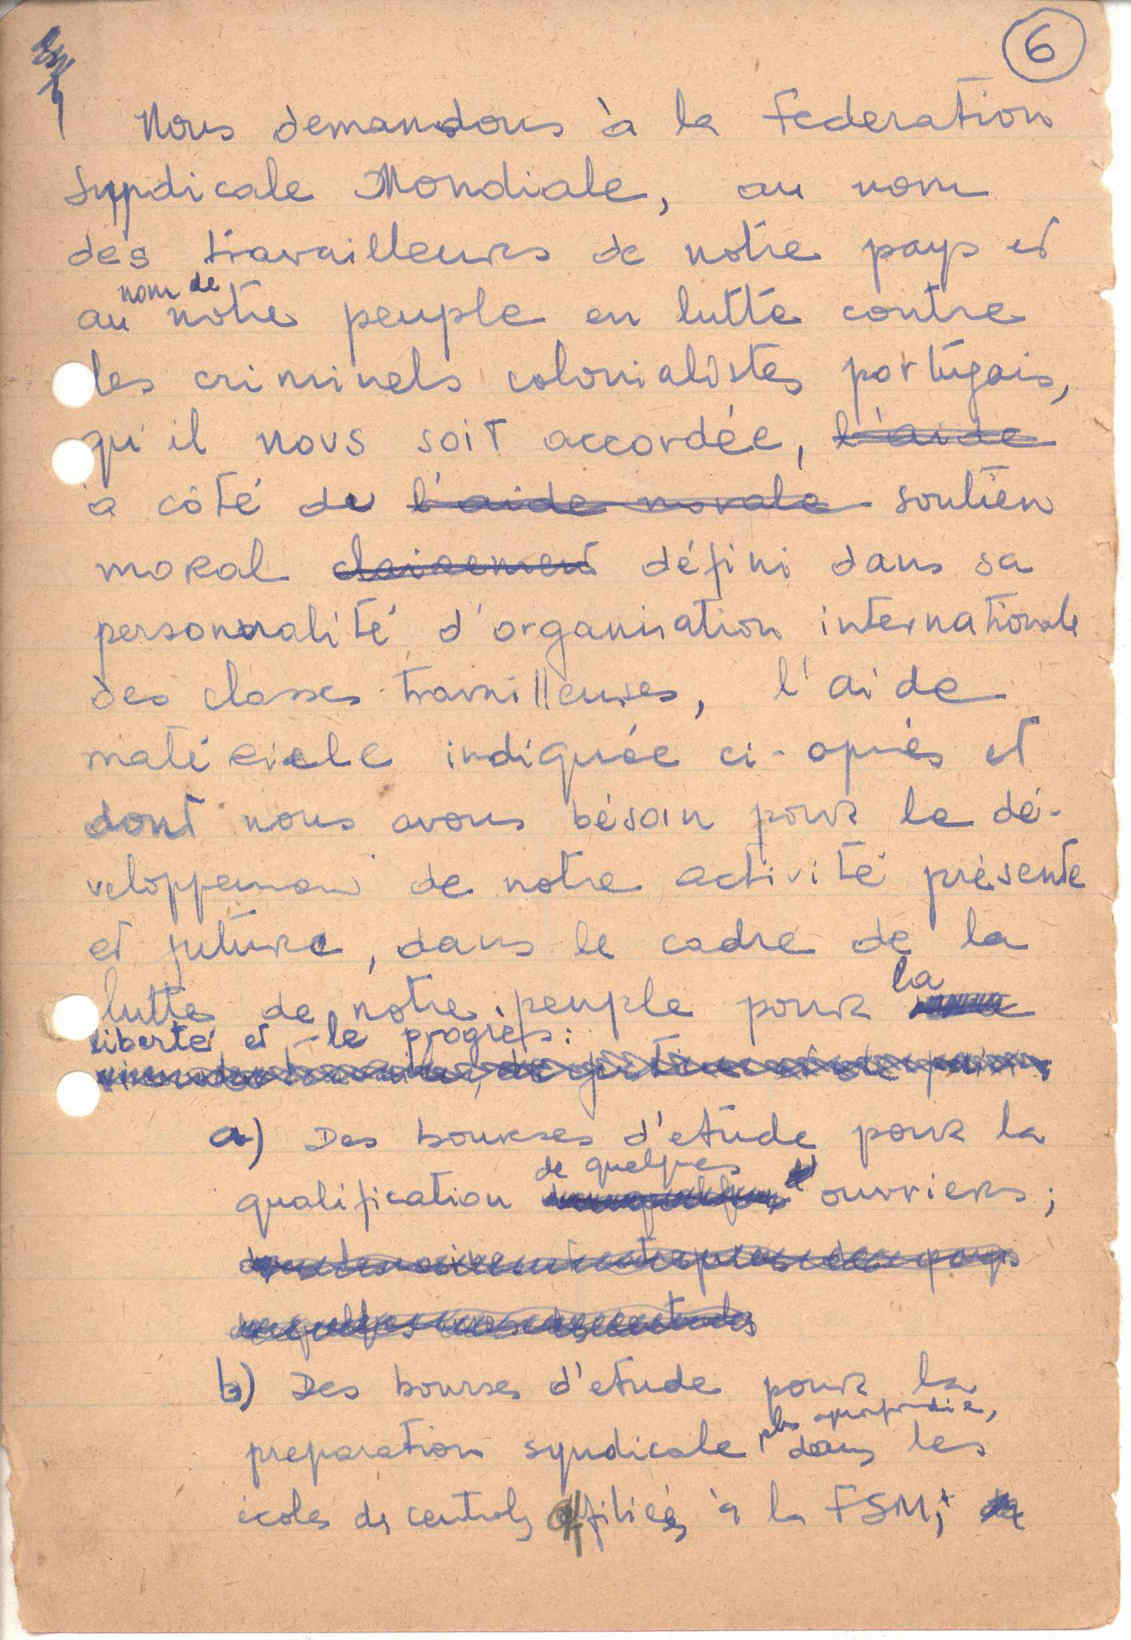 6
Nous demandons à la Federation
Syndicale Mondiale, au nom
des travailleurs de notre pays et
nom de
au notre peuple en lutte contre
les criminels colonialistes portugais,
qu'il nous soit accordée, l'aide
à côté de l'aide morale soutien
moral clairement défini dans sa
personnalité d'organisation internationale
des classes travailleuses, l'aide
matérielle indiquée ci-après et
dont nous avons bésoin pour le dé-
veloppement de notre activité présente
et future, dans le cadre de la
lutte de notre peuple pour la
liberté et le progrès:
a) Des bourses d'etude pour la
de quelques
qualification ouvriers;
b) Des bourses d'etude pour la
plus aprofondie,
preparation syndicale dans les
écoles de centrales affiliées à la FSM;